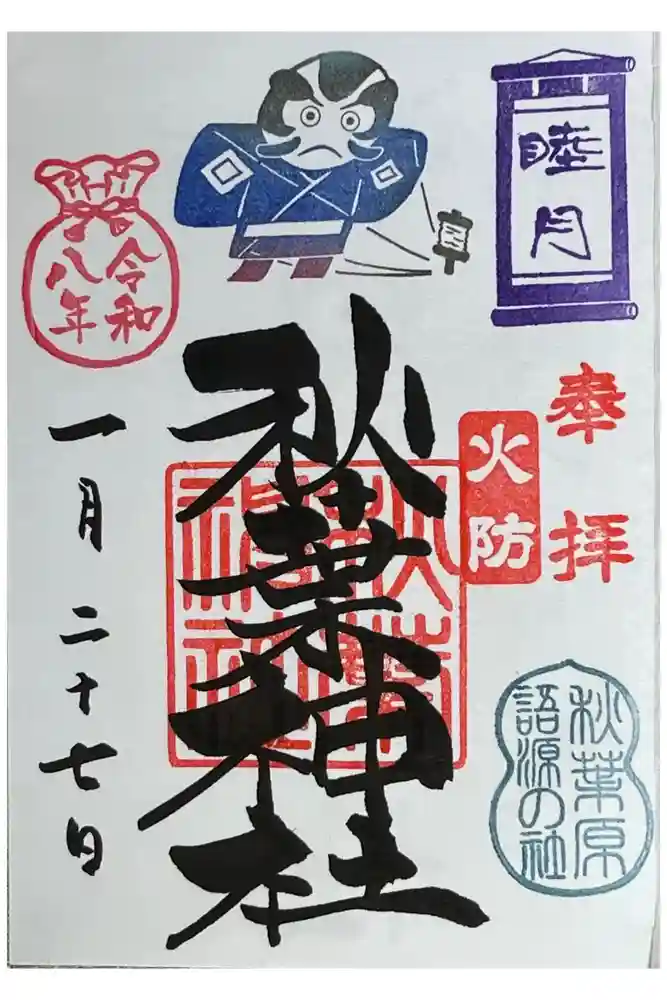 睦月
奉拝
火防
秋葉原
語源の社
秋葉神社
秋葉
神社
令和
八年
一月二十七日